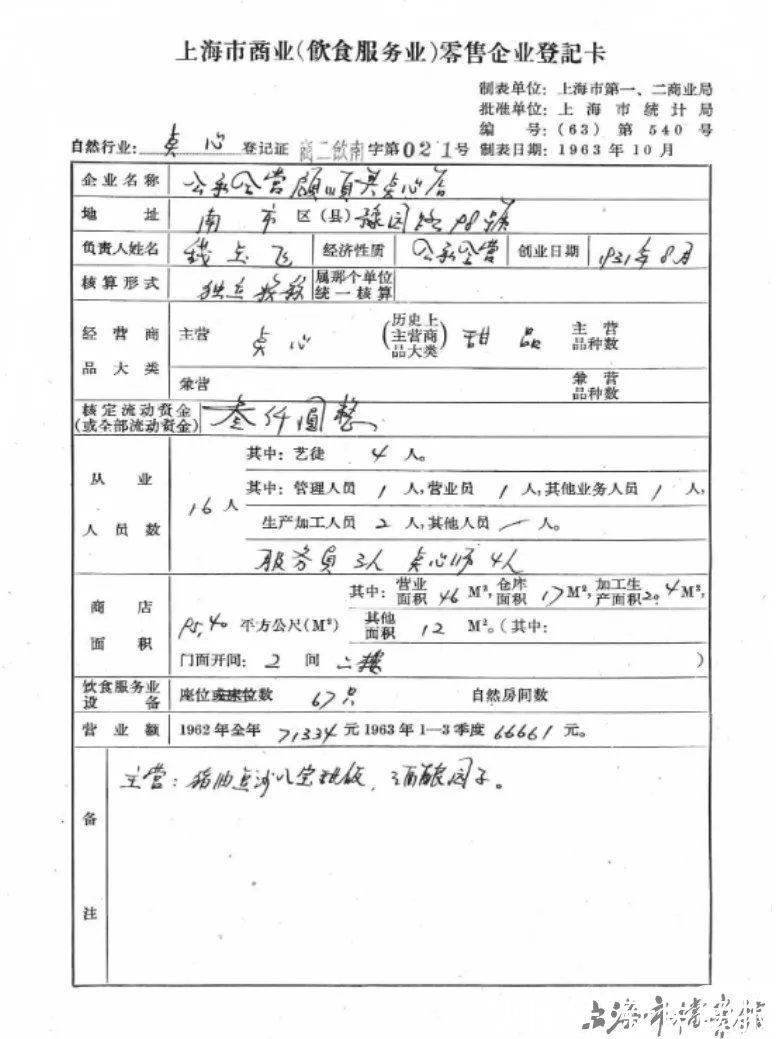 上海市商业(飲食服务业)零售企业登記卡
制表单位: 上海市第一、二商业局
批准单位: 上海市统计局
编号: (63) 第 540 号
自然行业: 点心 登记证 商二飲南 字第 021 号 制表日期: 1963 年 10 月
企业名称 公私合营顾顺兴点心店
地址 南市 区(县) 豫园路98號
负责人姓名 钱 飞 经济性质 公私合营 创业日期 1931年8月
核算形式 独立核算 属那个单位统一核算
经营商品大类 主营 点心 (历史上主营商品大类) 甜品 主营品种数
兼营 兼营品种数
核定流动资金(或全部流动资金) 叁仟圆整
从业人员数 16 人 其中: 艺徒 4 人。
其中: 管理人员 1 人, 营业员 1 人, 其他业务人员 1 人,
生产加工人员 2 人, 其他人员 一 人。
服务员 3人 点心师 4人
商店面积 95.40 平方公尺(M²) 其中: 营业面积 46 M², 仓库面积 17 M², 加工生产面积 20.4 M²,
其他面积 12 M²。(其中:
门面开间: 2 间 二楼 )
飲食服务业设备 座位或床位数 67只 自然房间数
营业额 1962 年全年 71334 元 1963 年 1—3 季度 66661 元。
备注 主营: 猪油豆沙八宝甜饭、酒酿园子。
上海市档案馆